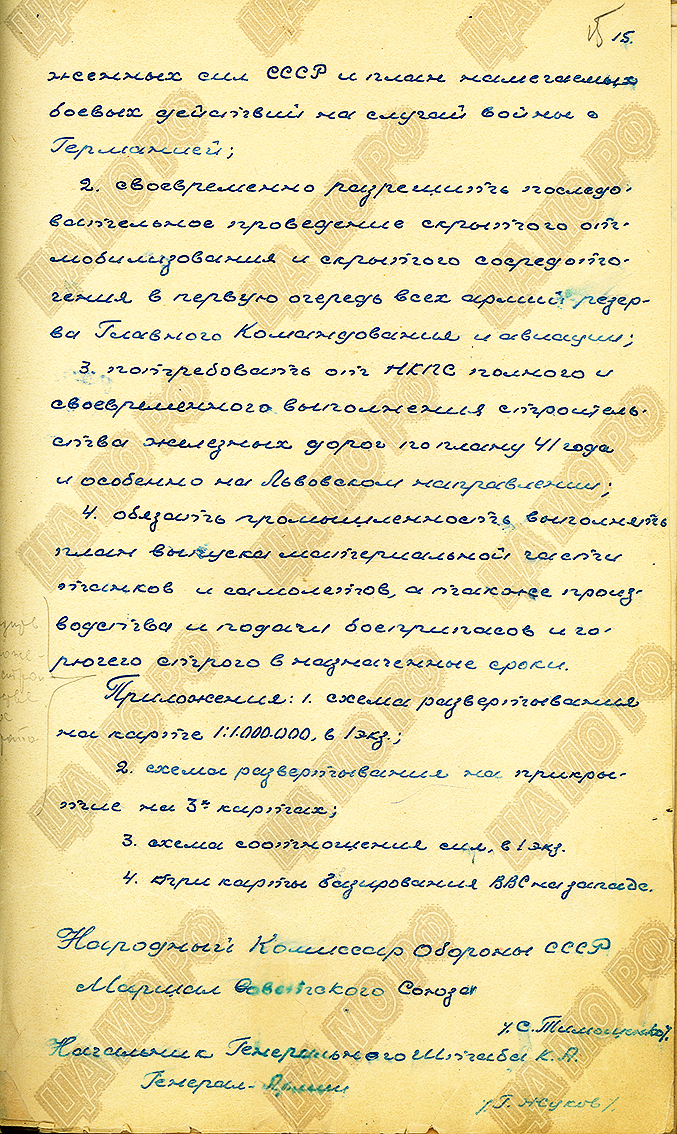 15.
женных сил СССР и план намечаемых
боевых действий на случай войны с
Германией;
2. своевременно разрешить последо-
вательное проведение скрытого от-
мобилизования и скрытого сосредото-
чения в первую очередь всех армий резер-
ва Главного Командования и авиации;
3. потребовать от НКПС полного и
своевременного выполнения строитель-
ства железных дорог по плану 41 года
и особенно на Львовском направлении;
4. обязать промышленность выполнять
план выпуска материальной части
танков и самолетов, а также произ-
водства и подачи боеприпасов и го-
рючего строго в назначенные сроки.
Приложения: 1. схема развертывания
на карте 1:1.000.000, в 1 экз.;
2. схема развертывания на прикры-
тие на 3х картах;
3. схема соотношения сил, в 1 экз.
4. три карты базирования ВВС на западе.
Народный Комиссар Обороны СССР
Маршал Советского Союза
/С. Тимошенко/.
Начальник Генерального Штаба К.А.
Генерал-Армии
/Г. Жуков/.
ЦА МО РФ